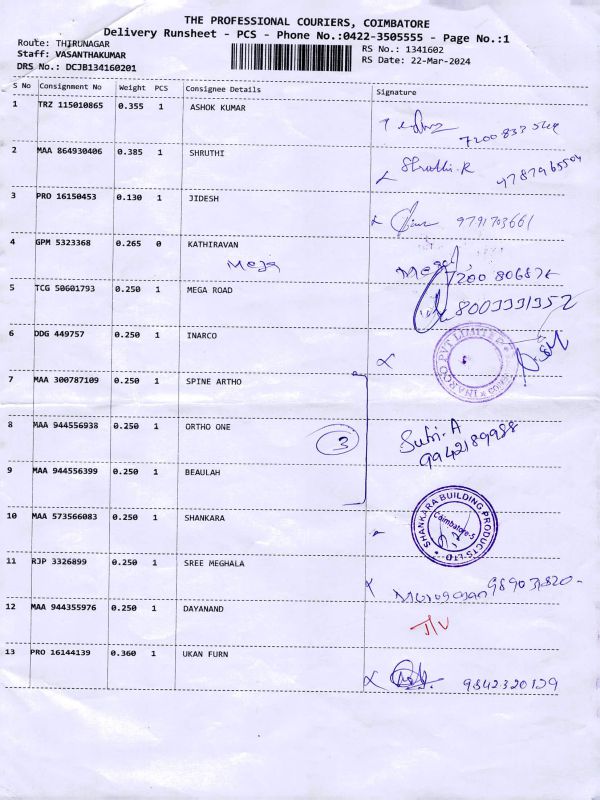 THE PROFESSIONAL COURIERS, COIMBATORE
Delivery Runsheet - PCS - Phone No.:0422-3505555 - Page No.:1
Route: THIRUNAGAR RS No.: 1341602
Staff: VASANTHAKUMAR RS Date: 22-Mar-2024
DRS No.: DCJB134160201
S No Consignment No Weight PCS Consignee Details Signature
1 TRZ 115010865 0.355 1 ASHOK KUMAR
2 MAA 864930406 0.385 1 SHRUTHI Shruthi.R
3 PRO 16150453 0.130 1 JIDESH 9791703661
4 GPM 5323368 0.265 0 KATHIRAVAN
Mega Mega
5 TCG 50601793 0.250 1 MEGA ROAD 8003331352
6 DDG 449757 0.250 1 INARCO INARCO PVT LIMITED
7 MAA 300787109 0.250 1 SPINE ARTHO
8 MAA 944556938 0.250 1 ORTHO ONE 3
9942189988
9 MAA 944556399 0.250 1 BEAULAH
10 MAA 573566083 0.250 1 SHANKARA SHANKARA BUILDING PRODUCTS LTD Coimbatore-5
11 RJP 3326899 0.250 1 SREE MEGHALA
Murugesan
12 MAA 944355976 0.250 1 DAYANAND
13 PRO 16144139 0.360 1 UKAN FURN 9842320129